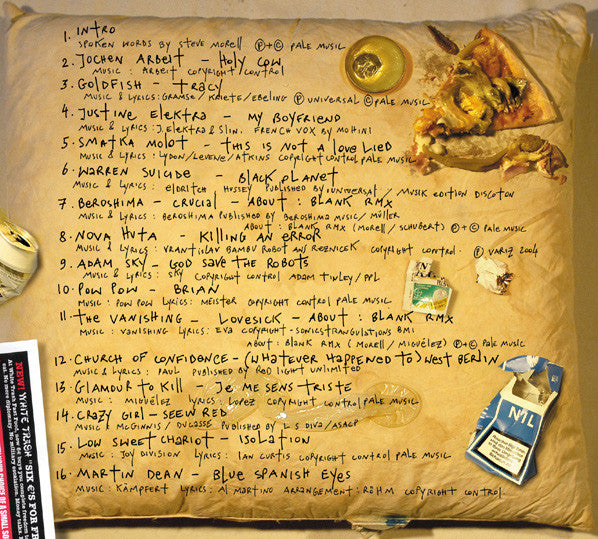 1. INTRO
SPOKEN WORDS BY STEVE MORELL Ⓟ+Ⓒ PALE MUSIC
2. JOCHEN ARBEIT - HOLY COW
MUSIC : ARBEIT COPYRIGHT/CONTROL
3. GOLDFISH - TRACY
MUSIC & LYRICS: GRAMSE/KRIETE/EBELING Ⓟ UNIVERSAL Ⓒ PALE MUSIC
4. JUSTINE ELEKTRA - MY BOYFRIEND
MUSIC & LYRICS: J. ELEKTRA & SLIN. FRENCH VOX BY MOHINI
5. SMATKA MOLOT - THIS IS NOT A LOVE LIED
MUSIC & LYRICS: LYDON/LEVENE/ATKINS COPYRIGHT CONTROL PALE MUSIC
6. WARREN SUICIDE - BLACK PLANET
MUSIC & LYRICS: ELDRITCH HUSSEY PUBLISHED BY UNIVERSAL / MUSIK EDITION DISCOTON
7. BEROSHIMA - CRUCIAL - ABOUT : BLANK RMX
MUSIC & LYRICS : BEROSHIMA PUBLISHED BY BEROSHIMA MUSIC/ MÜLLER
ABOUT : BLANK RMX (MORELL / SCHUBERT) Ⓟ+Ⓒ PALE MUSIC
8. NOVA HUTA - KILLING AN ERROR
MUSIC & LYRICS: VRANTISLAV BAMBU ROBOT AN/ REZNICEK COPYRIGHT CONTROL. Ⓟ VARIZ 2004
9. ADAM SKY - GOD SAVE THE ROBOTS
MUSIC & LYRICS: SKY COPYRIGHT CONTROL ADAM TINLEY/ PPL
10. POW POW - BRIAN
MUSIC: POW POW LYRICS: MEISTER COPYRIGHT CONTROL PALE MUSIC
11. THE VANISHING - LOVESICK - ABOUT : BLANK RMX
MUSIC : VANISHING LYRICS: EVA COPYRIGHT - SONICSTRANGULATIONS BMI
ABOUT : BLANK RMX (MORELL / MIGUÉLEZ) Ⓟ+Ⓒ PALE MUSIC
12. CHURCH OF CONFIDENCE - (WHATEVER HAPPENED TO) WEST BERLIN
MUSIC & LYRICS : PAUL PUBLISHED BY RED LIGHT UNLIMITED
13. GLAMOUR TO KILL - JE ME SENS TRISTE
MUSIC : MIGUÉLEZ LYRICS: LOPEZ COPYRIGHT CONTROL PALE MUSIC
14. CRAZY GIRL - SEEW RED
MUSIC: MCGINNIS / DUCASSE PUBLISHED BY L S DIVA / ASACP
15. LOW SWEET CHARIOT - ISOLATION
MUSIC : JOY DIVISION LYRICS : IAN CURTIS COPYRIGHT CONTROL PALE MUSIC
16. MARTIN DEAN - BLUE SPANISH EYES
MUSIC : KÄMPFERT LYRICS : AL MARTINO ARRANGEMENT: RÖHM COPYRIGHT CONTROL.
NEW! WHITE TRASH "SIX €'S FOR
NIL